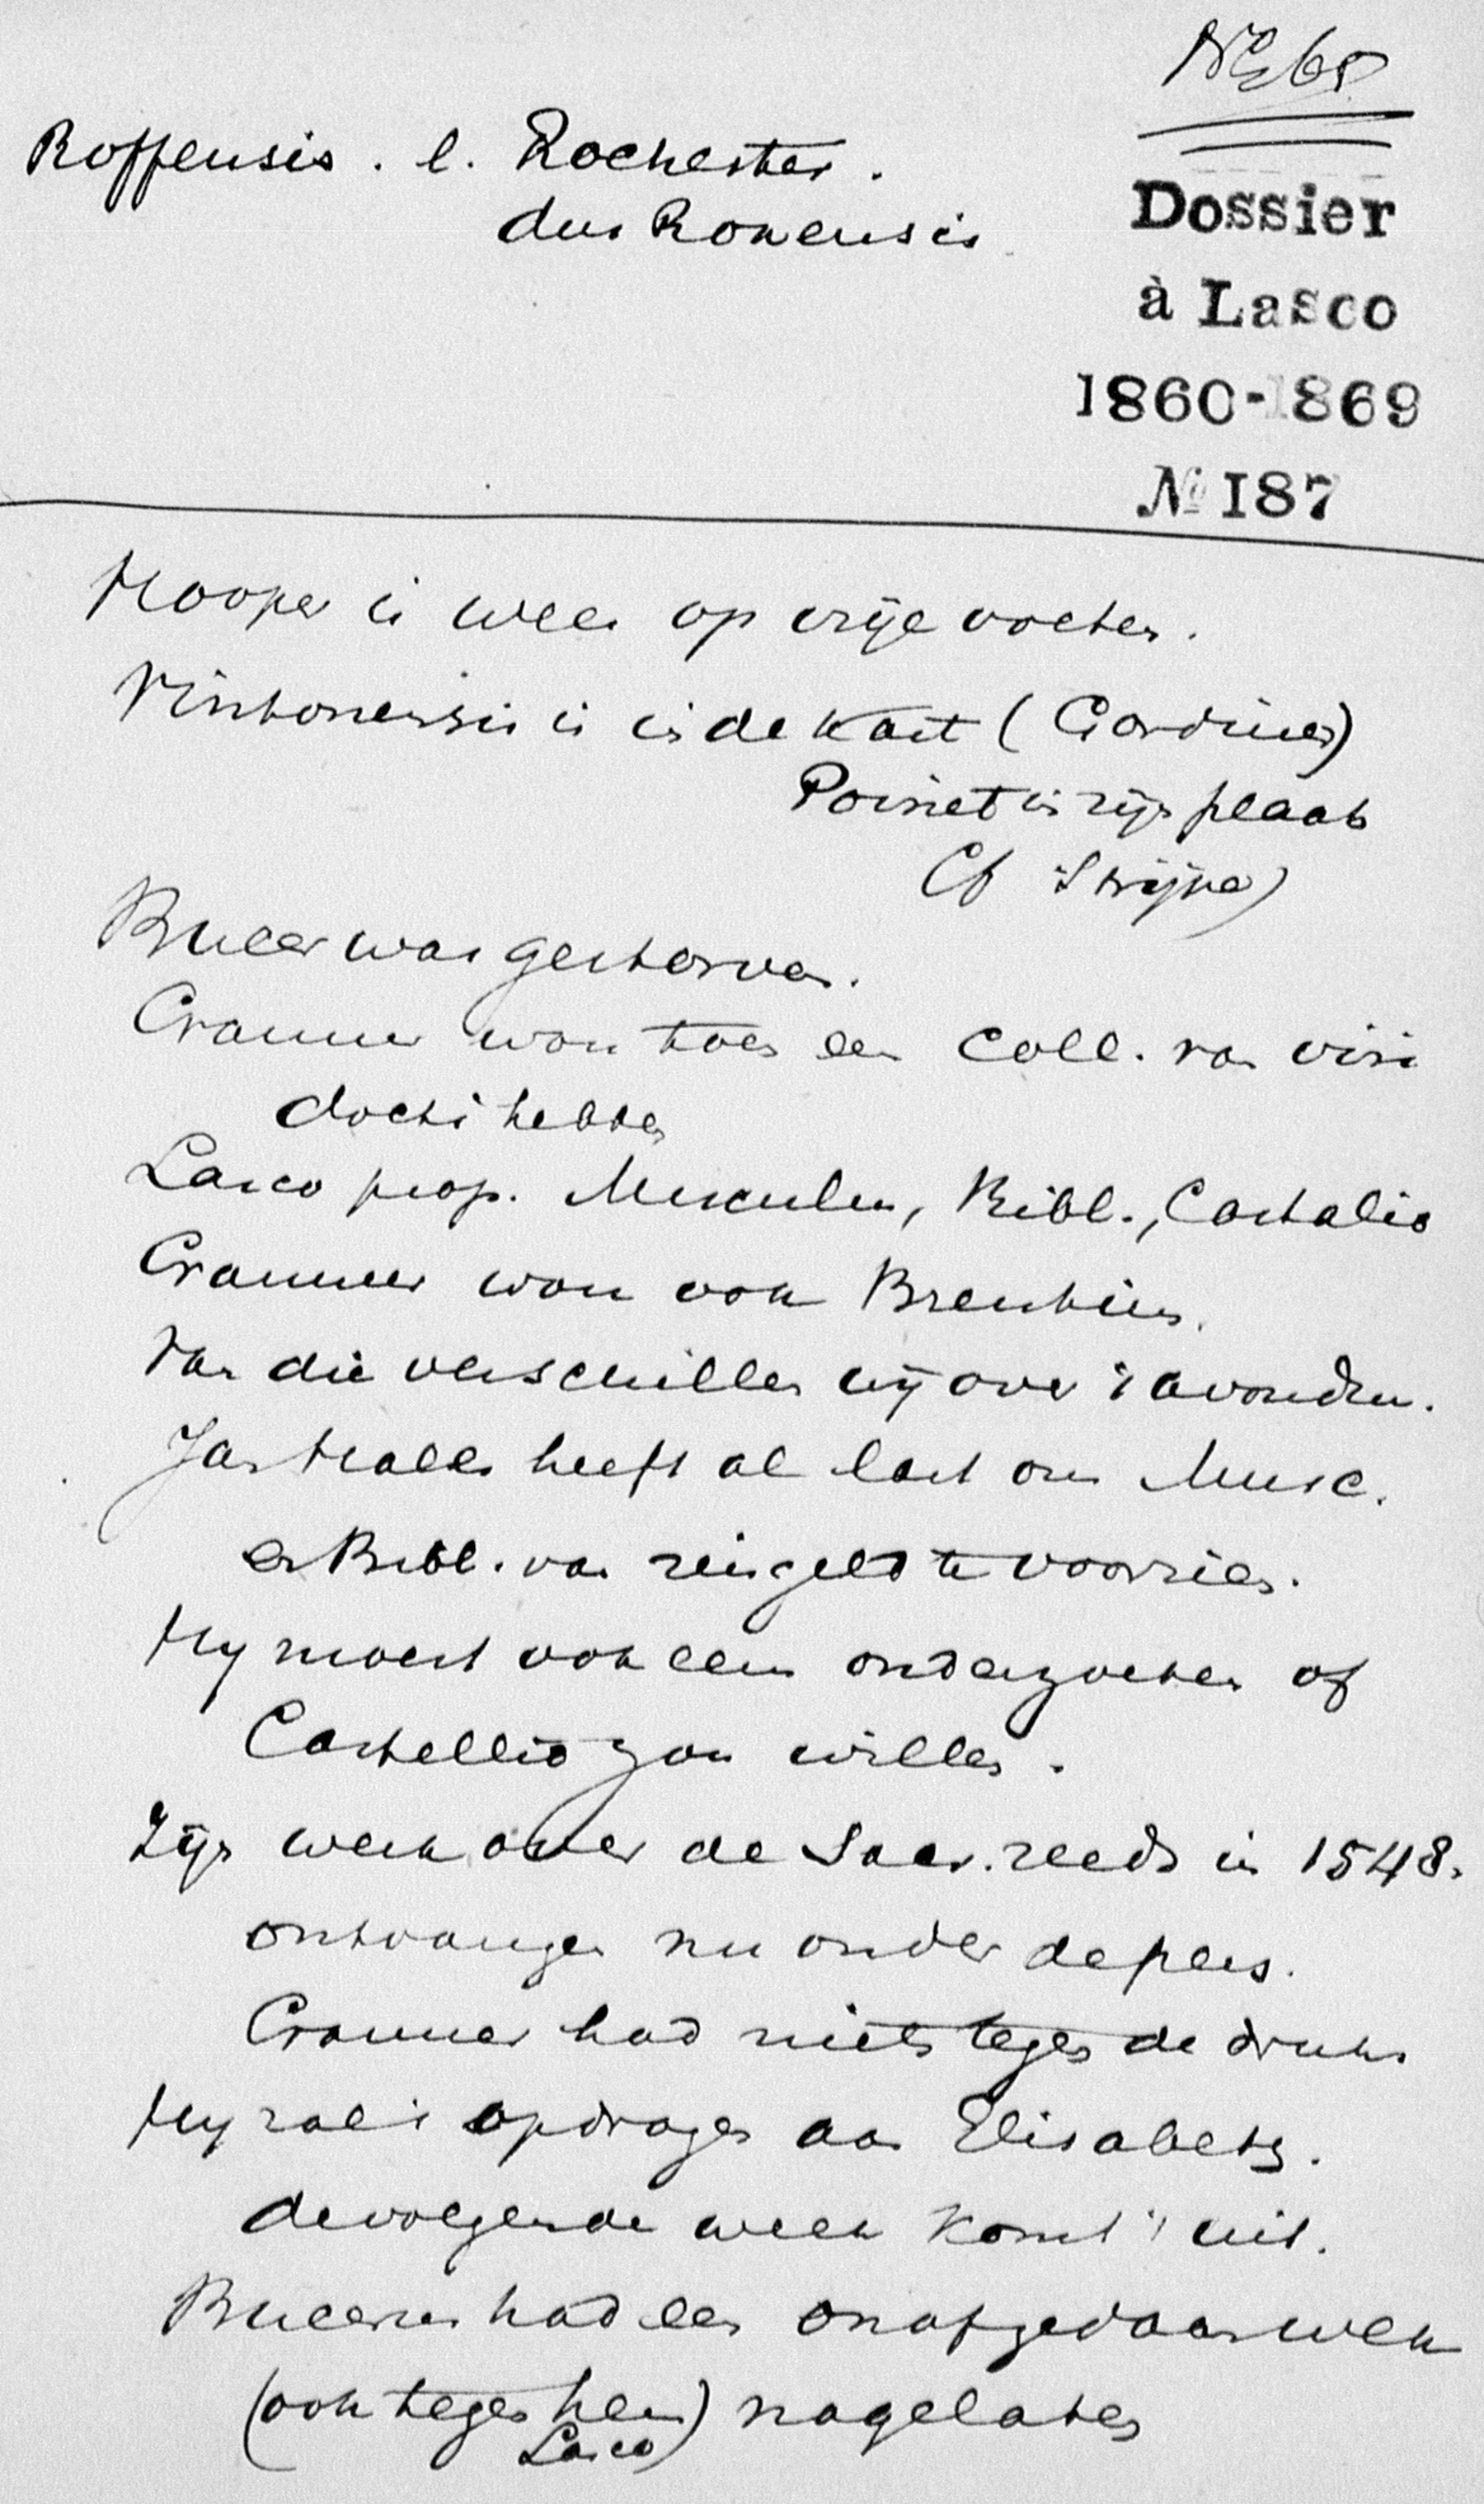 No 68
Roffensis. l. Rochester.
dus Ronensis
Dossier
à Lasco
1860-1869
No 187
Hooper is weer op vrije voeten.
Vintonensis is in de kast (Gardiner)
Poinet in zijn plaats
Cf Strijpe)
Bucer was gestorven.
Cranmer wou toen een Coll. van viri
docti hebben
Lasco prop. Musculus, Bibl., Castalio
Cranmer wou ook Brentius.
Van die verschillen wij over 't avondm.
Jan Hales heeft al last om Musc.
en Bibl. van reisgeld te voorzien.
Hy moest ook eens onderzoeken of
Castellio zou willen.
Zijn werk over de Sacr. reeds in 1548.
ontvangen nu onder de pers.
Cranmer had niets tegen de druk
Hy zal 't opdragen aan Elisabeth.
de volgende week komt 't uit.
Bucerus had een onafgedaan werk
(ook tegen hem) nagelaten
Lasco